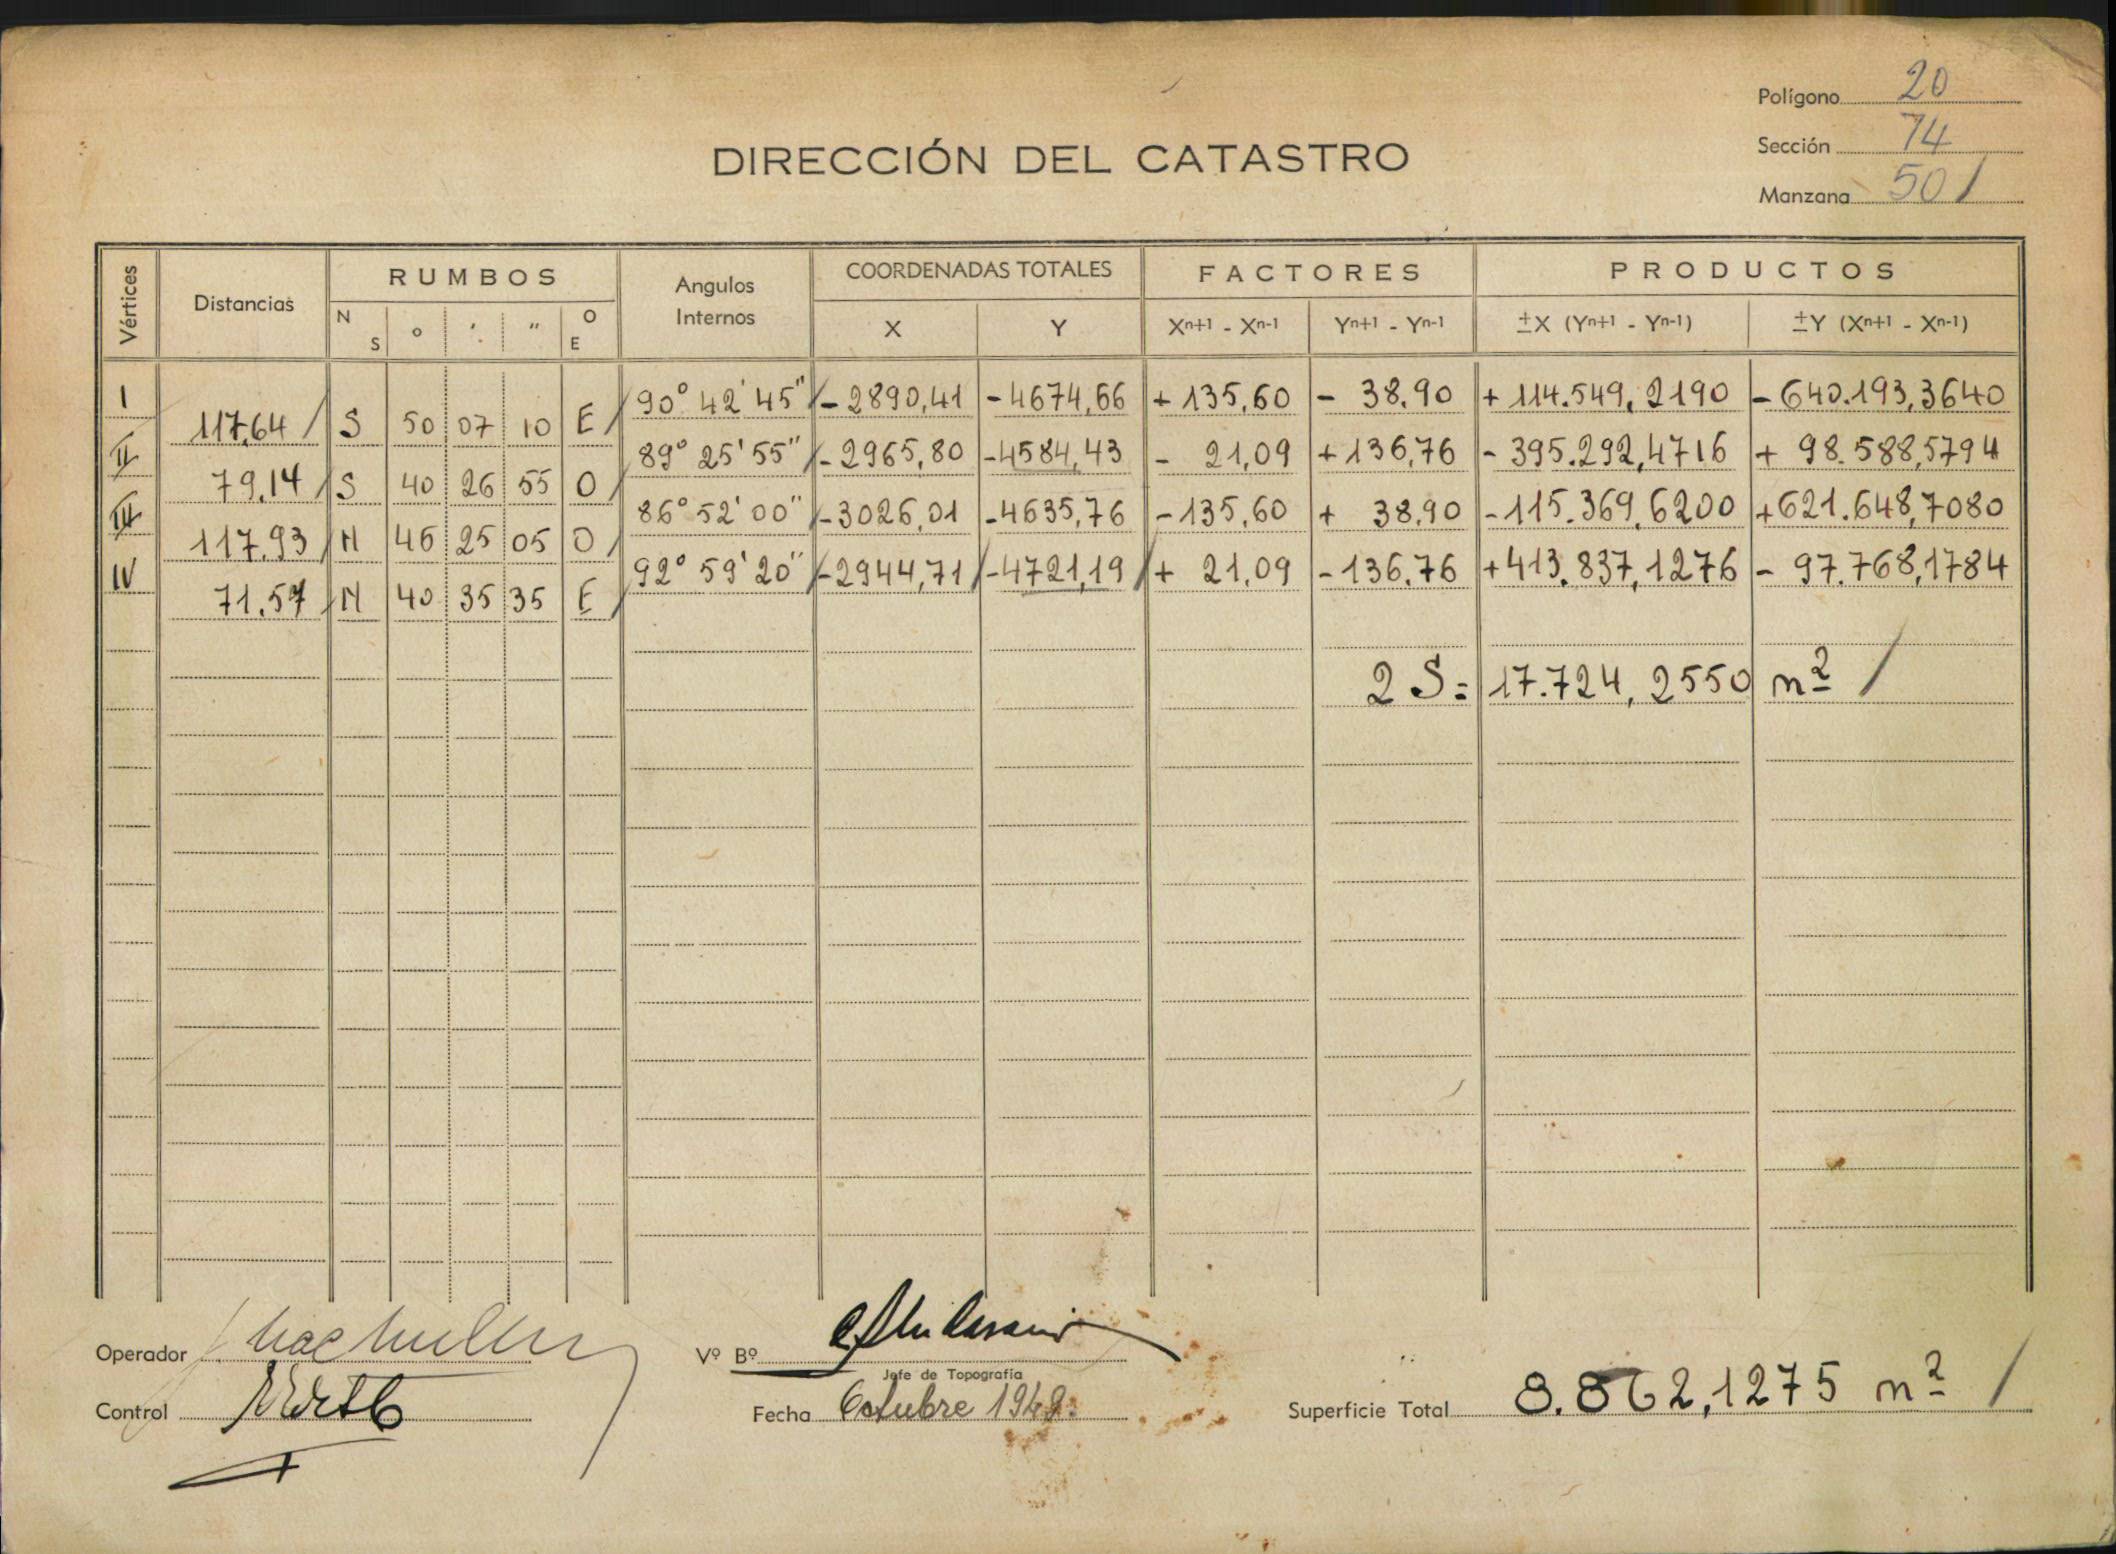 Polígono 20
Sección 74
Manzana 50
DIRECCIÓN DEL CATASTRO
Vértices Distancias RUMBOS Angulos Internos COORDENADAS TOTALES FACTORES PRODUCTOS
N S ° ′ ″ O E X Y Xn+1 - Xn-1 Yn+1 - Yn-1 ±X (Yn+1 - Yn-1) ±Y (Xn+1 - Xn-1)
I 90° 42' 45" -2890,41 -4674,66 +135,60 - 38,90 +114.549,2190 -640.193,3640
117,64 S 50 07 10 E
II 89° 25' 55" -2965,80 -4584,43 - 21,09 +136,76 -395.292,4716 + 98.588,5794
79,14 S 40 26 55 O
III 86° 52' 00" -3026,01 -4635,76 -135,60 + 38,90 -115.369,6200 +621.648,7080
117,93 N 46 25 05 O
IV 92° 59' 20" -2944,71 -4721,19 + 21,09 -136,76 +413.837,1276 - 97.768,1784
71,57 N 40 35 35 E
2 S = 17.724,2550 m²
Operador
Vº Bº
Jefe de Topografía
Control
Fecha Octubre 1948.
Superficie Total 8.862,1275 m²